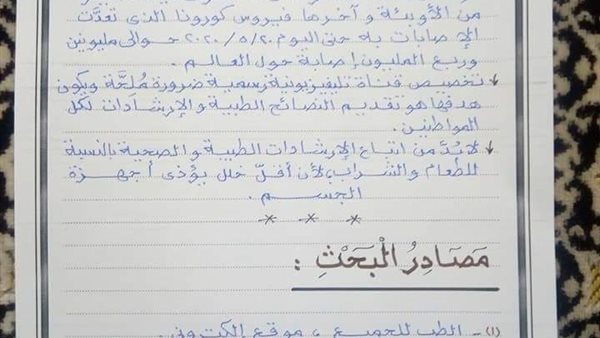 من الأوبئة و آخرها فيروس كورونا الذى تعدَّت
الإصابات به حتى اليوم ٢٠٢٠/٥/٢٠ حوالى مليونين
وربع المليون إصابة حول العالم.
تخصيص قناة تليفزيونية رسمية ضرورة مُلحَّة ويكون
هدفها هو تقديم النصائح الطبية و الإرشادات لكل
المواطنين.
لا بُدَّ من اتباع الإرشادات الطبية و الصحية بالنسبة
للطعام والشَّراب، لأن أقلّ خلل يؤذى أجهزة
الجسم.
* * *
مَصَادِرُ الْبَحْثِ :
(١) - الطب للجميع ، موقع إلكترونى.